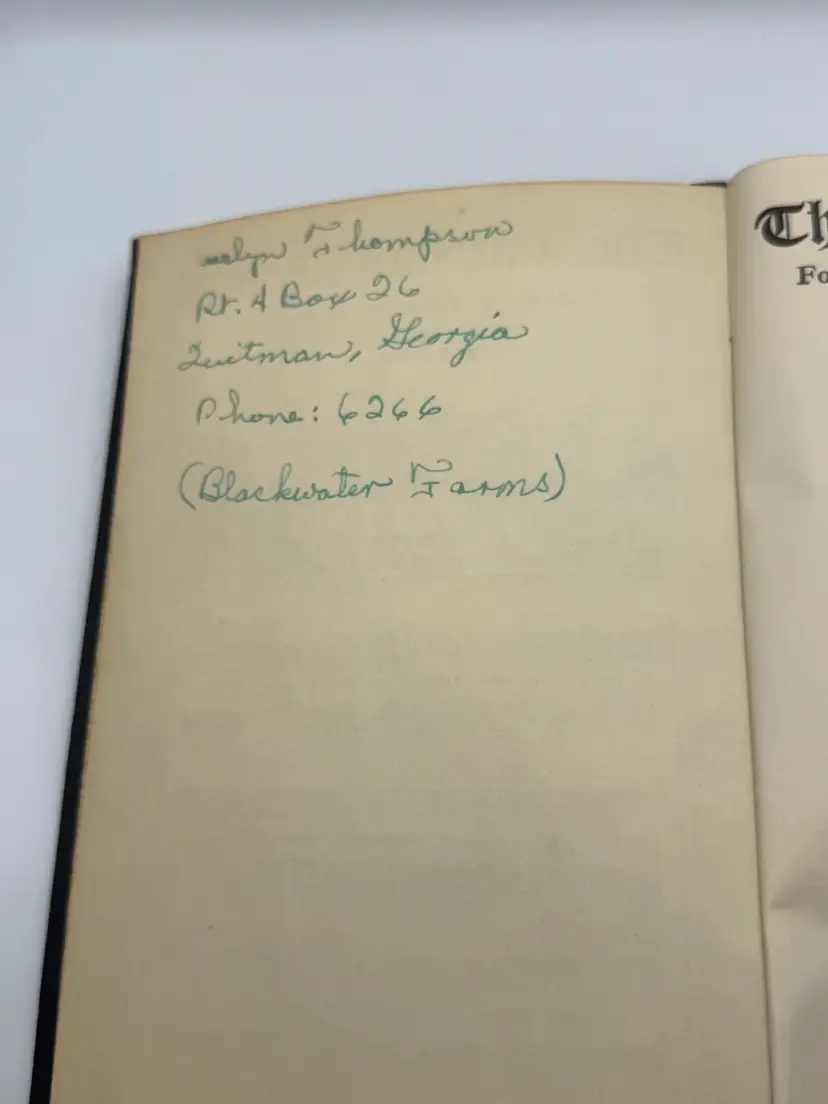 Thompson
Rt. 4 Box 26
Quitman, Georgia
Phone: 6266
(Blackwater Farms)
Th
Fo